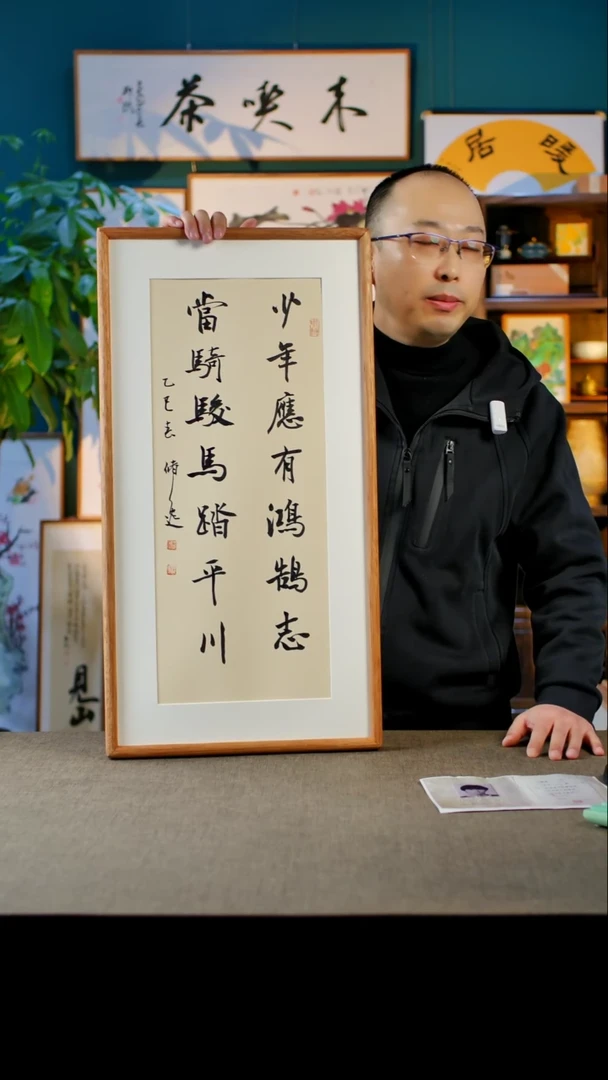 來喫茶
暖居
少年應有鴻鵠志
當騎駿馬踏平川
乙巳春
見山